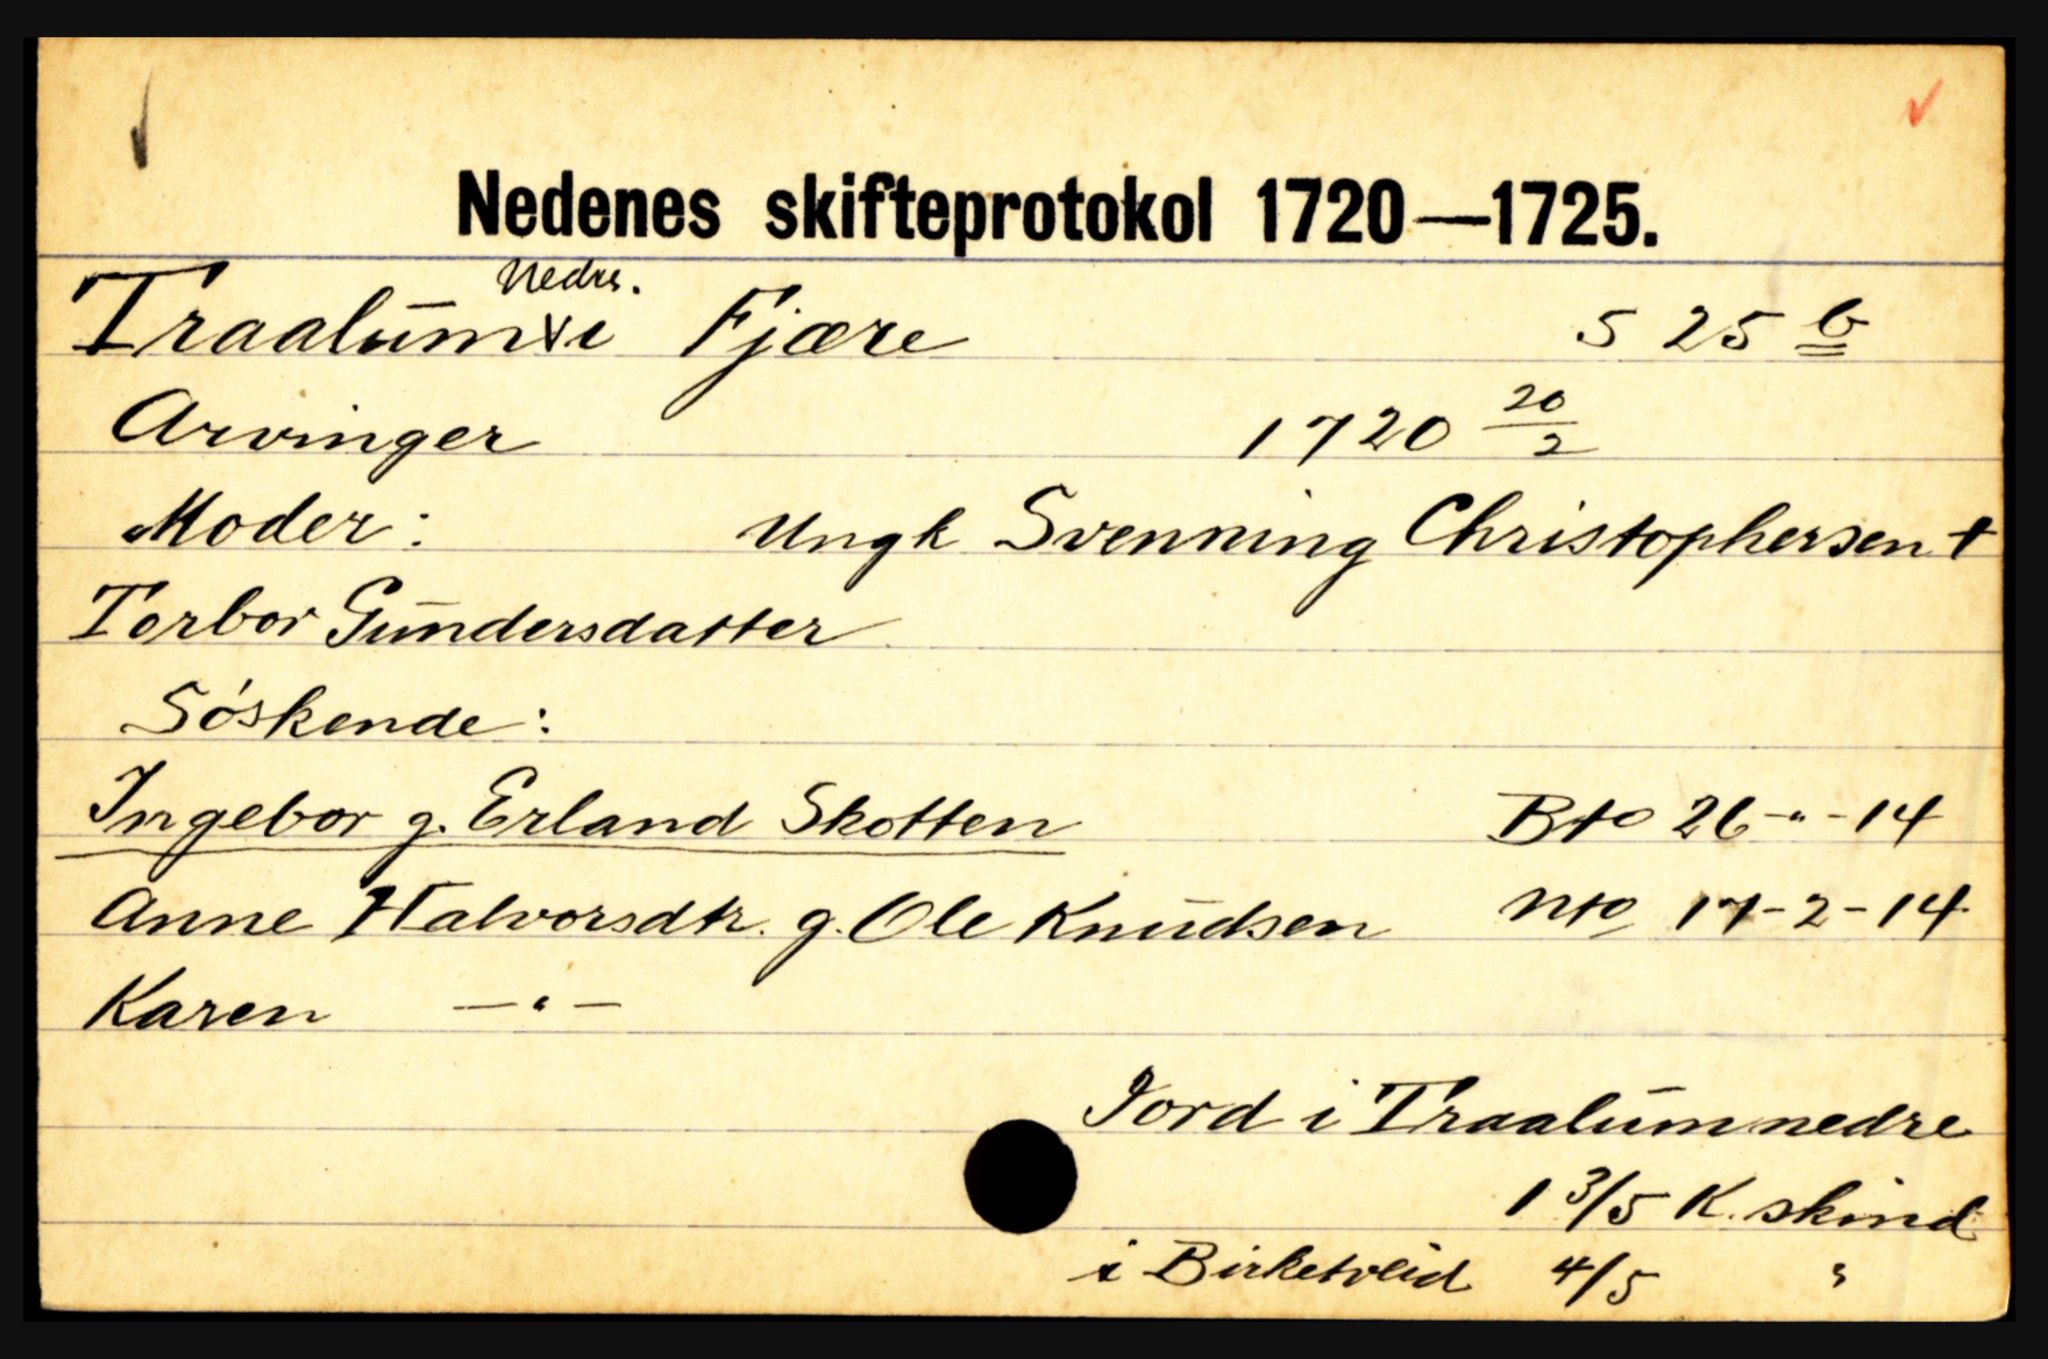 Nedenes skifteprotokol 1720—1725.
Nedre.
Traalum i Fjære S 25 b
Arvinger 1720 20/2
Moder: Ungk Svenning Christophersen +
Torbor Gundersdatter
Söskende:
Ingebor g. Erland Skotten Bto 26-"-14
Anne Halvorsdtr. g. Ole Knudsen Nto 17-2-14
Karen —"—
Jord i Traalum nedre
1 3/5 K. skind
i Birketveid 4/5 "